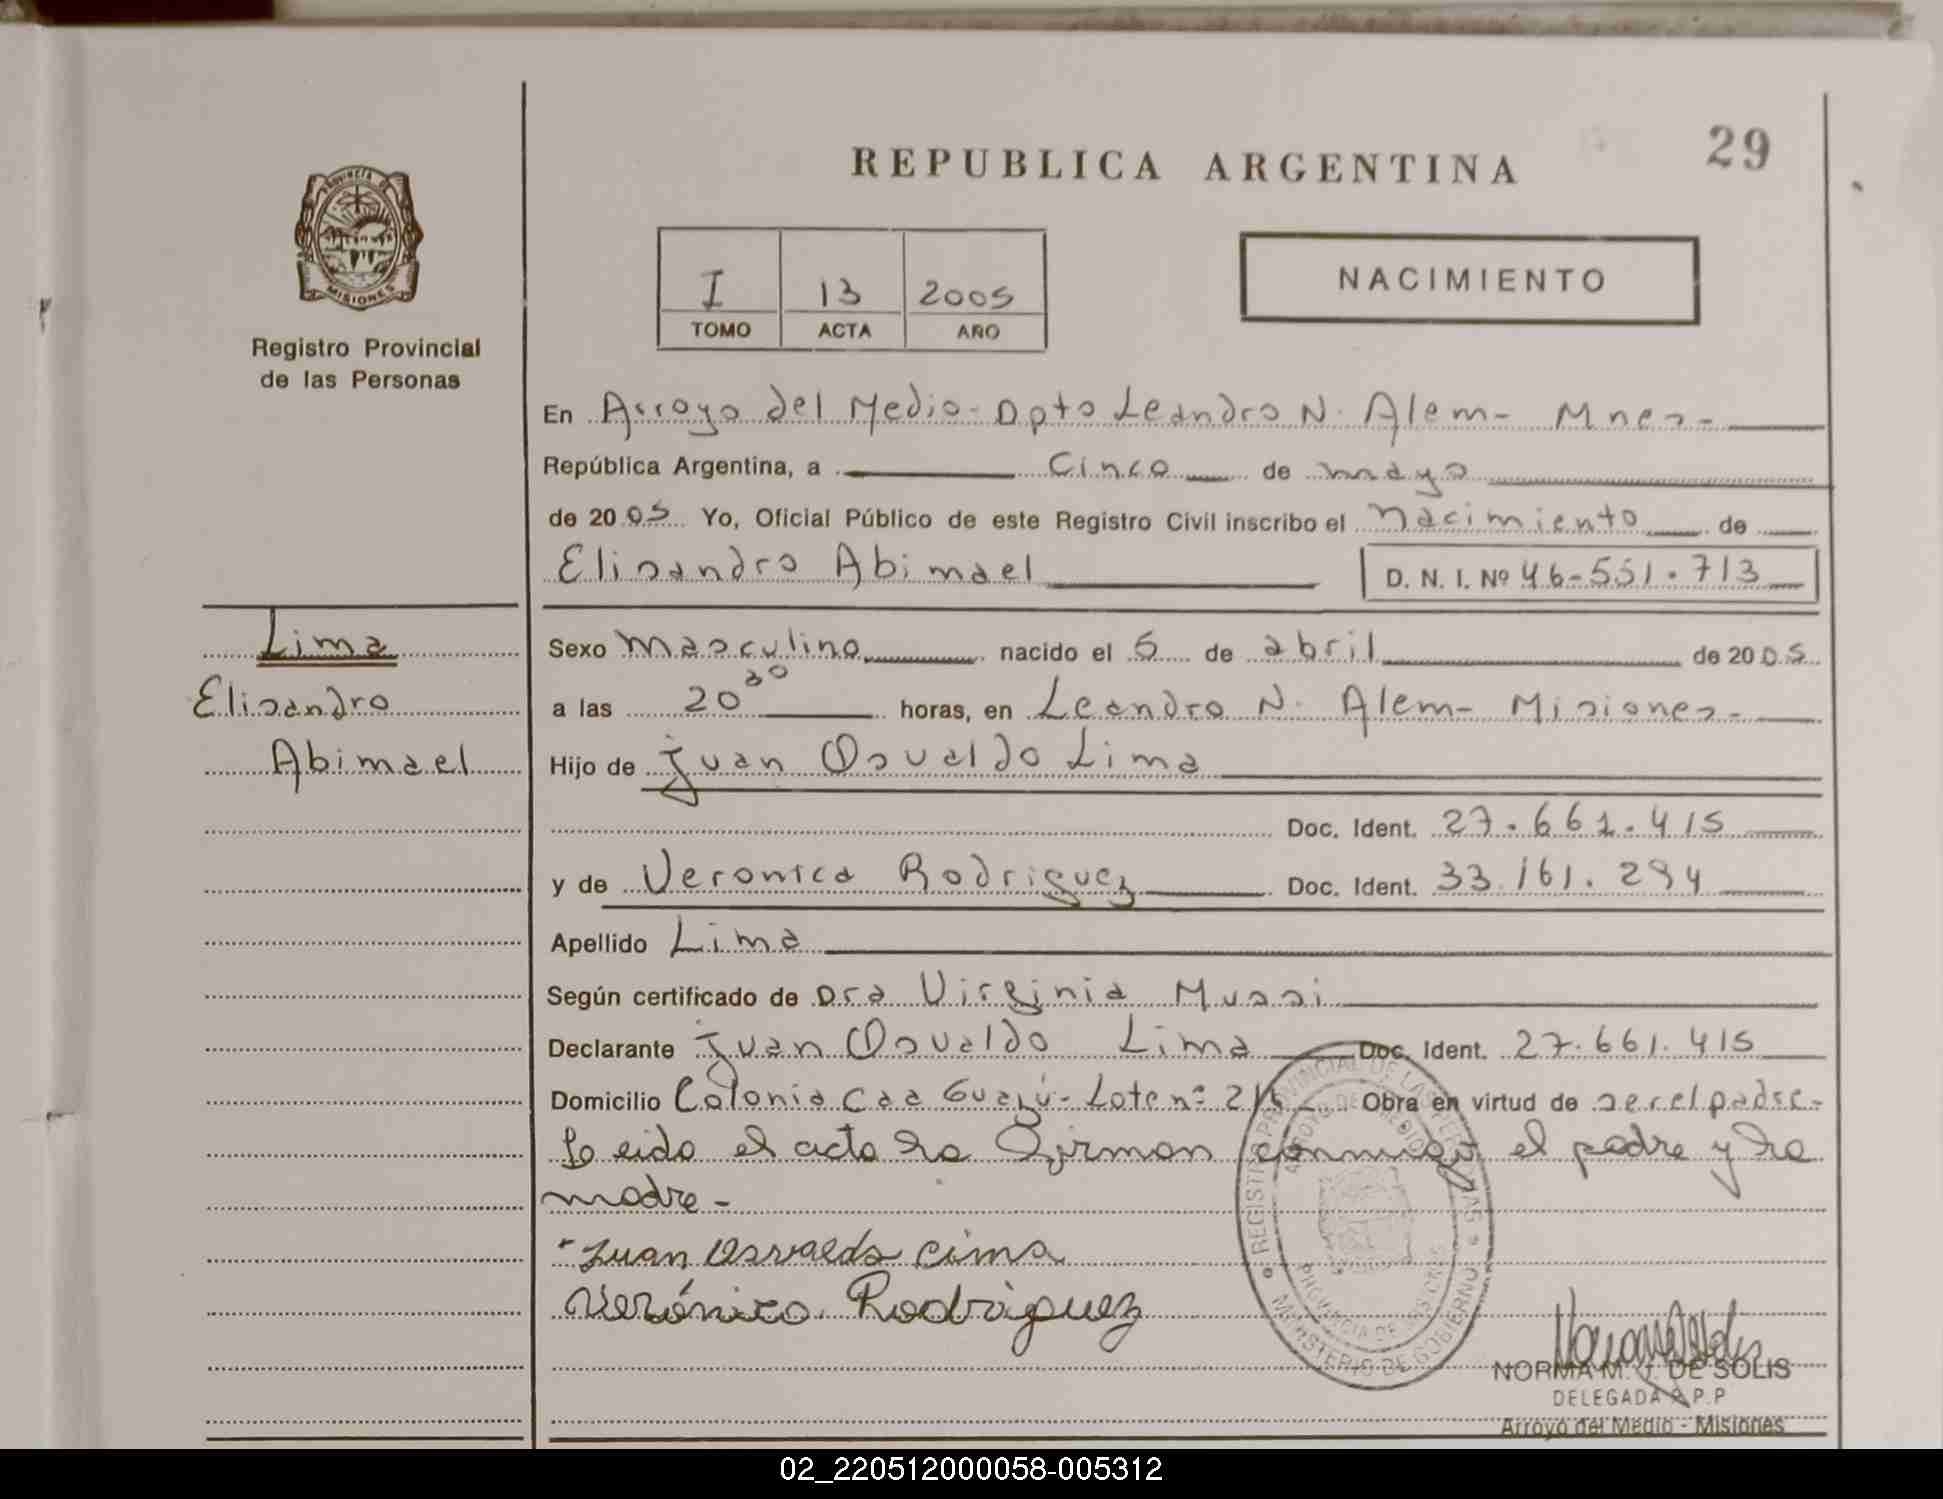 29
REPUBLICA ARGENTINA
PROVINCIA DE
MISIONES
Registro Provincial
de las Personas
I 13 2005
TOMO ACTA AÑO
NACIMIENTO
En Arroyo del Medio- Dpto Leandro N. Alem- Mnes-
República Argentina, a cinco de mayo
de 2005 Yo, Oficial Público de este Registro Civil inscribo el nacimiento de
Elisandro Abimael D. N. I. Nº 46-551.713
Lima
Elisandro
Abimael
Sexo masculino nacido el 5 de abril de 2005
a las 20 30 horas, en Leandro N. Alem- Misiones-
Hijo de Juan Osvaldo Lima
Doc. Ident. 27.661.415
y de Veronica Rodriguez Doc. Ident. 33.161.294
Apellido Lima
Según certificado de Dra Virginia Mussi
Declarante Juan Osvaldo Lima Doc. Ident. 27.661.415
Domicilio Colonia Caa Guazú- Lote nº Obra en virtud de ser el padre-
Leido el acta la firman conmigo el padre y la
madre-
Juan Osvaldo Lima
Verónica Rodríguez
REGISTRO PROVINCIAL DE LAS PERSONAS
ARROYO DEL MEDIO
PROVINCIA DE MISIONES
MINISTERIO DE GOBIERNO
NORMA M. DE SOLIS
DELEGADA R.P.P
Arroyo del Medio - Misiones
02_220512000058-005312